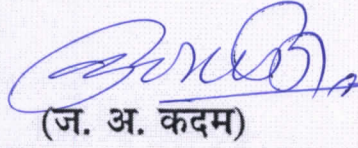 (ज. अ. कदम)